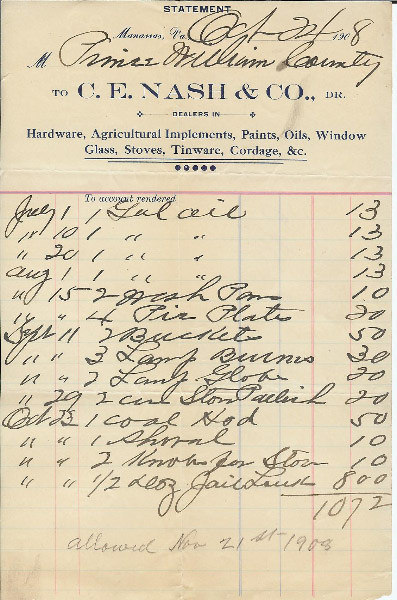 STATEMENT
Manassas, Va. Oct 24 1908
M Prince William County
TO C. E. NASH & CO., DR.
DEALERS IN
Hardware, Agricultural Implements, Paints, Oils, Window
Glass, Stoves, Tinware, Cordage, &c.
To account rendered
July 1 1 Gal oil 13
" 10 1 " " 13
" 20 1 " " 13
Aug 1 1 " " 13
" 15 2 Wash Pans 10
" " 4 Pie Plates 20
Sept 11 2 Buckets 50
" " 3 Lamp Burners 30
" " 2 Lamp Globe 20
" 29 2 can Stove Polish 20
Oct 23 1 Coal Hod 50
" " 1 Shovel 10
" " 2 Knobs for Stove 10
" " 1/2 doz Jail Locks 800
1072
allowed Nov 21st 1908